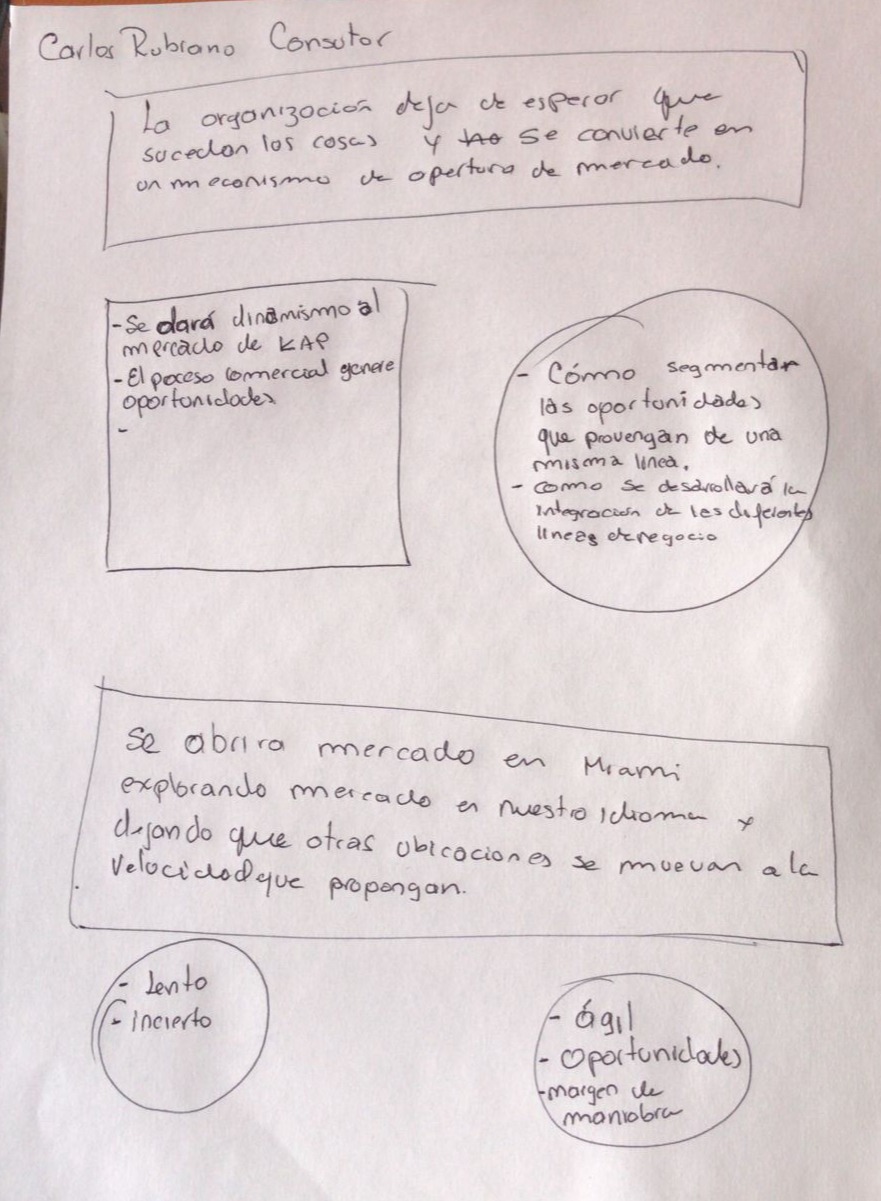 Carlos Rubiano Consutor
La organización deja de esperar que
sucedan las cosas y no se convierte en
un mecanismo de apertura de mercado.
- Se dará dinamismo al
mercado de KAP
- El poceso comercial genere
oportunidades
-
- Cómo segmentar
las oportunidades
que provengan de una
misma linea.
- como se desarollará la
integración de las diferentes
lineas de negocio
Se abrira mercado en Miami
explorando mercado en nuestro idioma y
dejando que otras ubicaciones se muevan a la
velocidad que propongan.
- Lento
- incierto
- ágil
- oportunidades
- margen de
maniobra